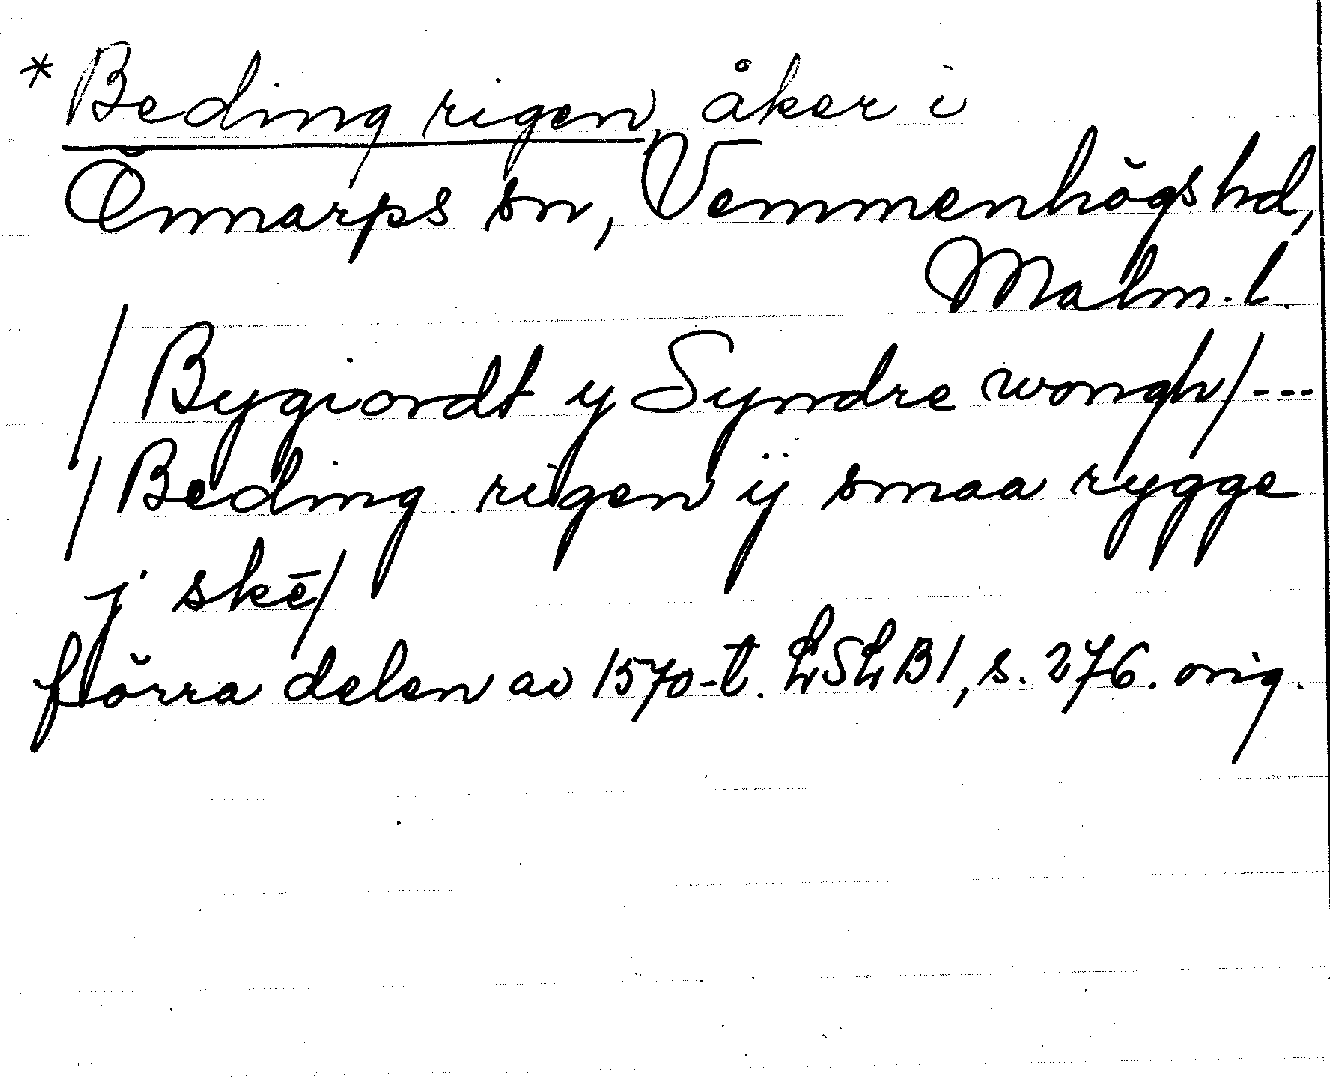 * Beding rigen, åker i
Önnarps sn, Vemmenhögs hd,
Malm. l.
/Bygiordt y Syndre wongh/---
/Beding rigen ÿ smaa rygge
j skē/
förra delen av 1570-t. LSLB1, s. 276. orig.